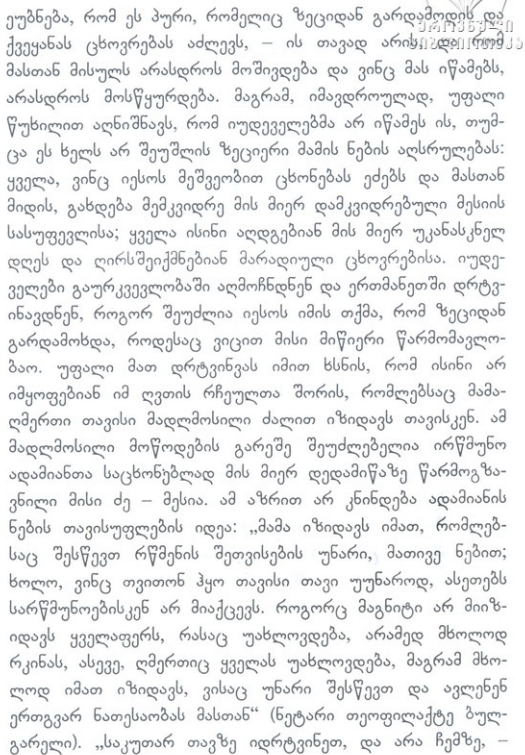 ეუბნება, რომ ეს პური, რომელიც ზეციდან გარდამოდის და
ქვეყანას ცხოვრებას აძლევს, – ის თავად არის და რომ
მასთან მისულს არასდროს მოშივდება და ვინც მას იწამებს,
არასდროს მოსწყურდება. მაგრამ, იმავდროულად, უფალი
წუხილით აღნიშნავს, რომ იუდეველებმა არ იწამეს ის, თუმ-
ცა ეს ხელს არ შეუშლის ზეციერი მამის ნების აღსრულებას:
ყველა, ვინც იესოს მეშვეობით ცხონებას ეძებს და მასთან
მიდის, გახდება მემკვიდრე მის მიერ დამკვიდრებული მესიის
სასუფევლისა; ყველა ისინი აღდგებიან მის მიერ უკანასკნელ
დღეს და ღირსშეიქმნებიან მარადიული ცხოვრებისა. იუდე-
ველები გაურკვევლობაში აღმოჩნდნენ და ერთმანეთში დრტვ-
ინავდნენ, როგორ შეუძლია იესოს იმის თქმა, რომ ზეციდან
გარდამოხდა, როდესაც ვიცით მისი მიწიერი წარმომავლო-
ბაო. უფალი მათ დრტვინვას იმით ხსნის, რომ ისინი არ
იმყოფებიან იმ ღვთის რჩეულთა შორის, რომლებსაც მამა-
ღმერთი თავისი მადლმოსილი ძალით იზიდავს თავისკენ. ამ
მადლმოსილი მოწოდების გარეშე შეუძლებელია ირწმუნო
ადამიანთა საცხონებლად მის მიერ დედამიწაზე წარმოგზა-
ვნილი მისი ძე – მესია. ამ აზრით არ კნინდება ადამიანის
ნების თავისუფლების იდეა: „მამა იზიდავს იმათ, რომლებ-
საც შესწევთ რწმენის შეთვისების უნარი, მათივე ნებით;
ხოლო, ვინც თვითონ ჰყო თავისი თავი უუნაროდ, ასეთებს
სარწმუნოებისკენ არ მიაქცევს. როგორც მაგნიტი არ მიიზ-
იდავს ყველაფერს, რასაც უახლოვდება, არამედ მხოლოდ
რკინას, ასევე, ღმერთიც ყველას უახლოვდება, მაგრამ მხო-
ლოდ იმათ იზიდავს, ვისაც უნარი შესწევთ და ავლენენ
ერთგვარ ნათესაობას მასთან“ (ნეტარი თეოფილაქტე ბულ-
გარელი). „საკუთარ თავზე იდრტვინეთ, და არა ჩემზე, –